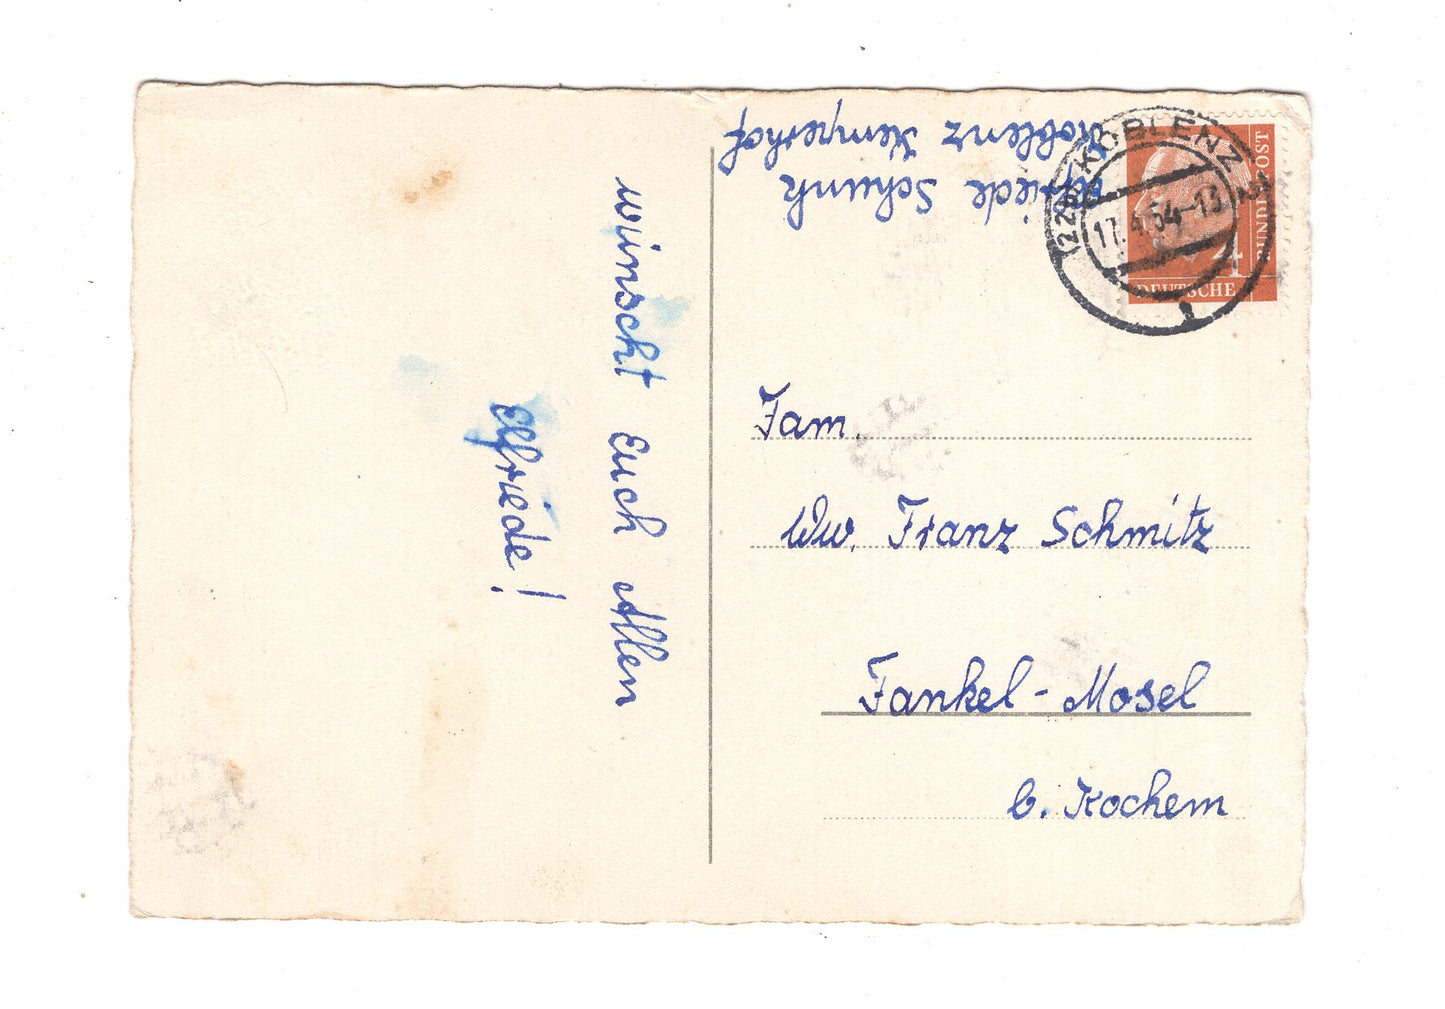 wünscht Euch Allen
Elfriede!
Elfriede Schunk
Koblenz Kemperhof
(22b) KOBLENZ 2
17.4.54-13
s
4
DEUTSCHE
BUNDESPOST
Fam.
Ww. Franz Schmitz
Fankel-Mosel
b. Kochem